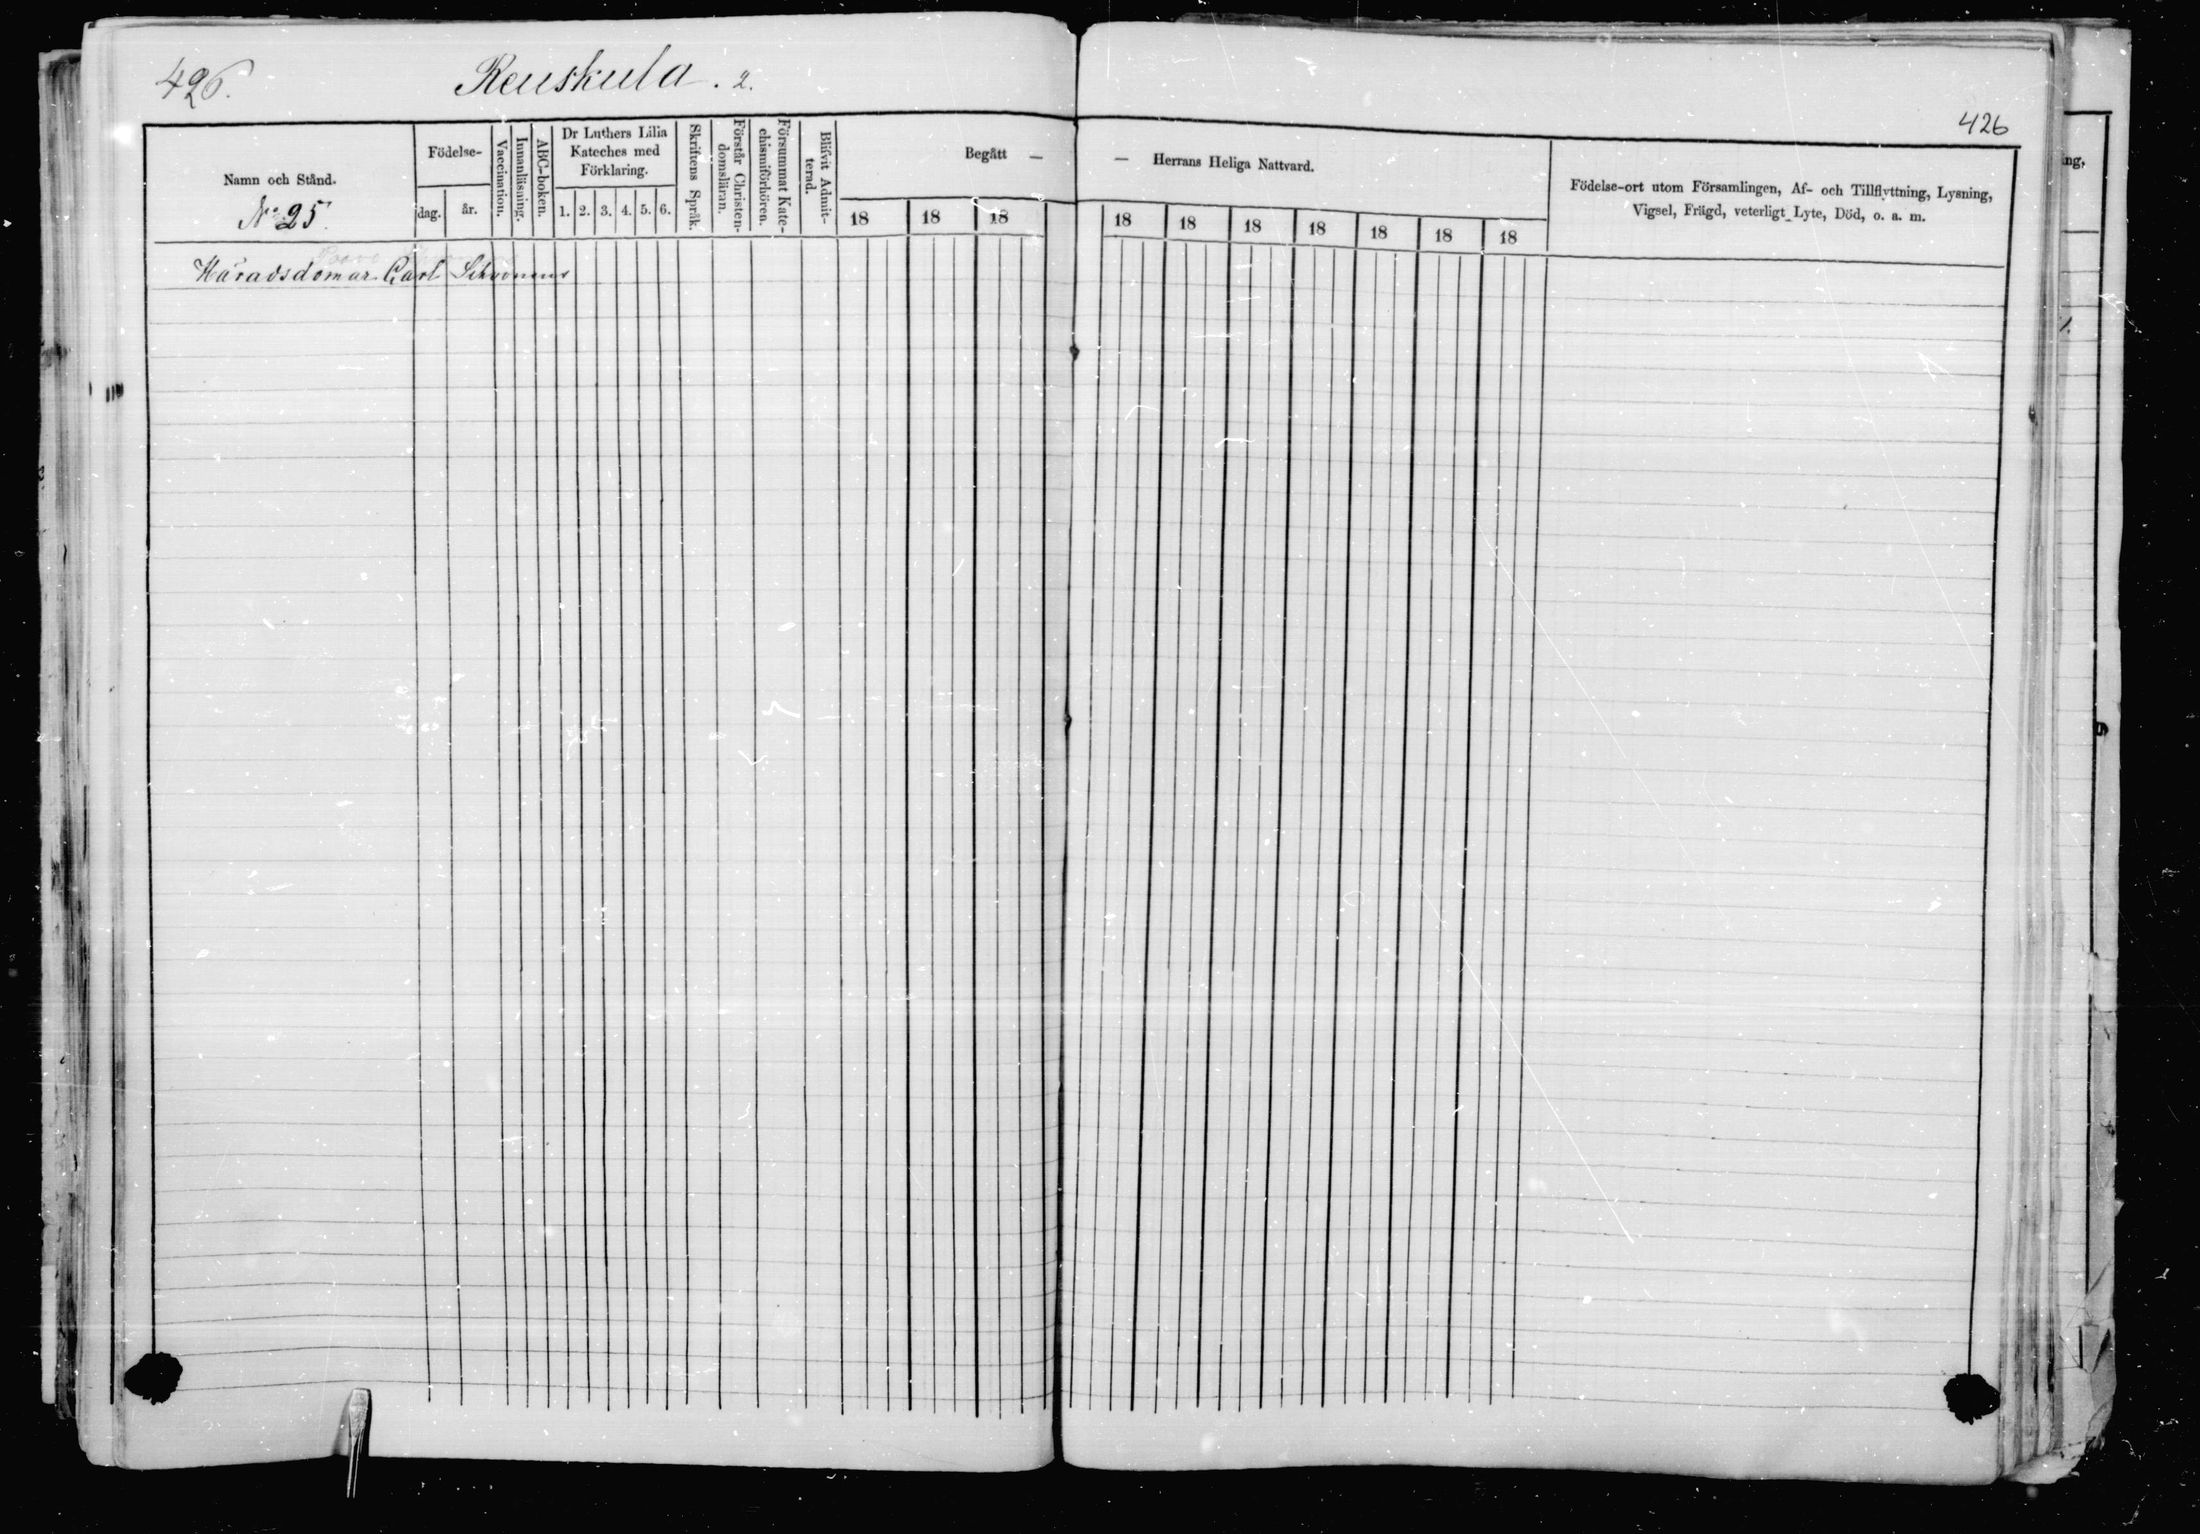 426.
Reuskula. 2.
426
Namn och Stånd.
No 25.
Födelse-
dag.
år.
Vaccination.
Innanläsning.
ABC-boken.
Dr Luthers Lilla
Kateches med
Förklaring.
1. 2. 3. 4. 5. 6.
Skriftens Språk.
Förstår Christen-
domsläran.
Försummat Kate-
chismiförhören.
Blifvit Admit-
terad.
Begått —
— Herrans Heliga Nattvard.
18 18 18 18 18 18 18 18 18 18
Födelse-ort utom Församlingen, Af- och Tillflyttning, Lysning,
Vigsel, Frägd, veterligt Lyte, Död, o. a. m.
Häradsdomar Carl
ng,
1.